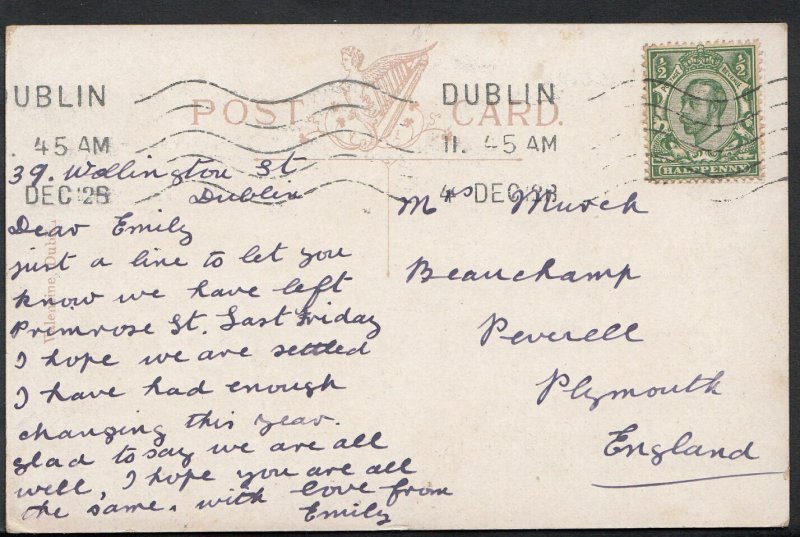 POST CARD.
DUBLIN
45 AM
DEC 12B
DUBLIN
11. 45 AM
4 DEC 12B
1/2 1/2
HALFPENNY
Valentine, Dublin
39. Wellington St
Dublin
Dear Emily
just a line to let you
know we have left
Primrose St. Last Friday
I hope we are settled
I have had enough
changing this year.
glad to say we are all
well, I hope you are all
the same. with love from
Emily
Mrs Murch
Beauchamp
Peverell
Plymouth
England